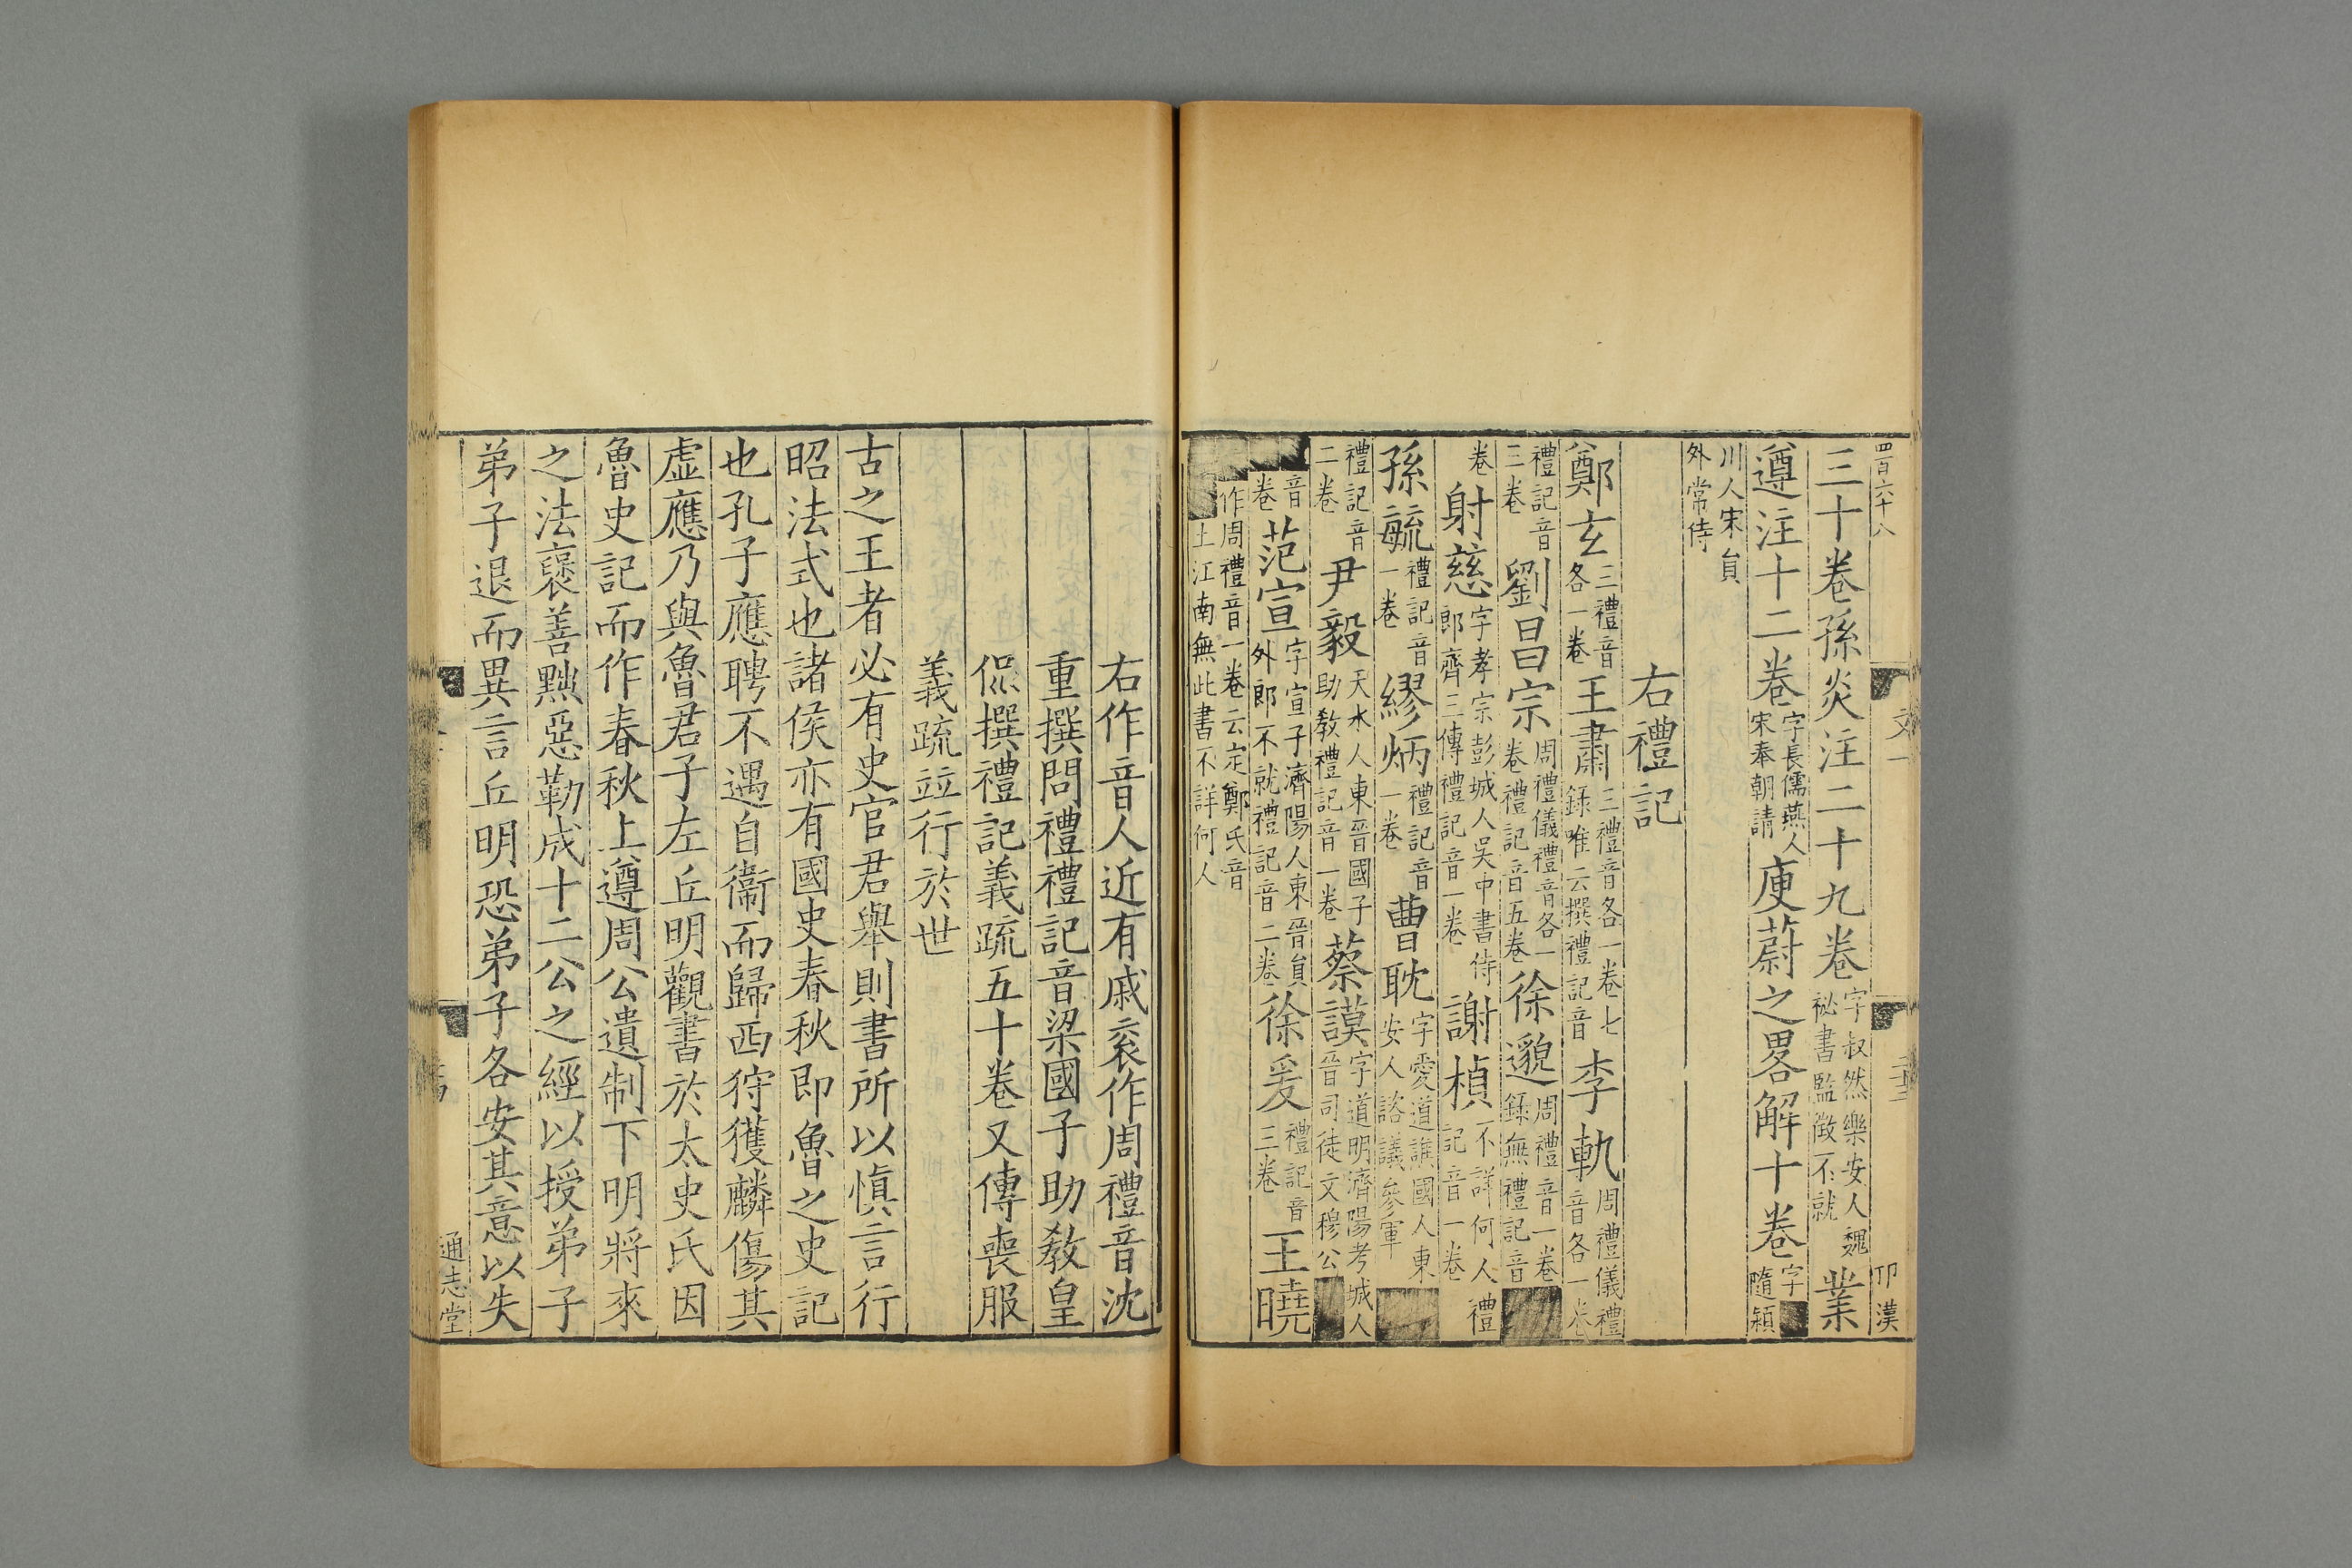 四百六十八 文一 卬漢
三十卷孫炎注二十九卷字叔然樂安人魏祕書監徵不就業
遵注十二卷字長儒燕人宋奉朝請庾蔚之畧解十卷字■隨潁
川人宋貟外常侍
右禮記
鄭玄三禮音各一卷王肅三禮音各一卷七錄唯云撰禮記音李軌周禮儀禮音各一卷
禮記音三卷劉昌宗周禮儀禮音各一卷禮記音五卷徐邈周禮音一卷錄無禮記音■
卷射慈字孝宗彭城人吳中書侍郎齊三傳禮記音一卷謝楨不詳何人禮記音一卷
孫毓禮記音一卷繆炳禮記音一卷曹耽字愛道譙國人東安人諮議參軍■
禮記音二卷尹毅天水人東晉國子助敎禮記音一卷蔡謨字道明濟陽考城人晉司徒文穆公■
■音卷范宣字宣子濟陽人東晉貟外郎不就禮記音二卷徐爰禮記音三卷王曉
■作周禮音一卷云定鄭氏音■土江南無此書不詳何人
右作音人近有戚衮作周禮音沈
重撰問禮禮記音梁國子助敎皇
侃撰禮記義疏五十卷又傳喪服
義疏竝行於世
古之王者必有史官君舉則書所以愼言行
昭法式也諸侯亦有國史春秋即魯之史記
也孔子應聘不遇自衞而歸西狩獲麟傷其
虛應乃與魯君子左丘明觀書於太史氏因
魯史記而作春秋上遵周公遺制下明將來
之法襃善黜惡勒成十二公之經以授弟子
弟子退而異言丘明恐弟子各安其意以失
通志堂